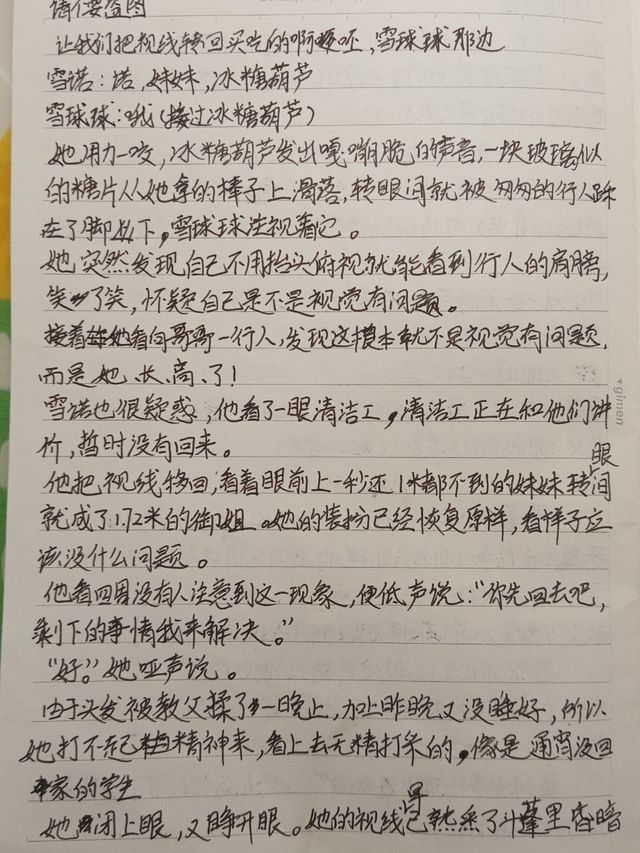 请不要盗图
让我们把视线转回买吃的啊哎呸，雪球球那边
雪诺：诺，妹妹，冰糖葫芦
雪球球：哦（接过冰糖葫芦）
她用力一咬，冰糖葫芦发出嘎嘣脆的声音，一块玻璃似
的糖片从她拿的棒子上滑落，转眼间就被匆匆的行人踩
在了脚以下，雪球球注视着它。
她突然发现自己不用抬头俯视就能看到行人的肩膀，
笑了笑，怀疑自己是不是视觉有问题。
接着她看向哥哥一行人，发现这根本就不是视觉有问题，
而是她、长、高、了！
雪诺也很疑惑，他看了一眼清洁工，清洁工正在和他们讲
价，暂时没有回来。
他把视线移回，看着眼前上一秒还1米都不到的妹妹转眼间
就成了1.72米的御姐。她的装扮已经恢复原样，看样子应
该没什么问题。
他看四周没有人注意到这一现象，便低声说：“你先回去吧，
剩下的事情我来解决。”
“好。”她哑声说。
由于头发被教父揉了一晚上，加上昨晚又没睡好，所以
她打不起精神来，看上去无精打采的，像是通宵没回
家的学生
她闭上眼，又睁开眼。她的视线早已熟悉了斗蓬里昏暗
gimen